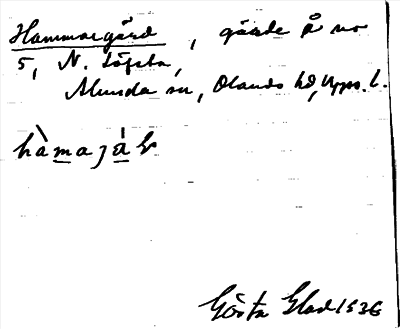 Hammargärd, gärde å no
5, N. Löfsta,
Alunda sn, Olands hd, Upps. l.
Gösta Glad 1936